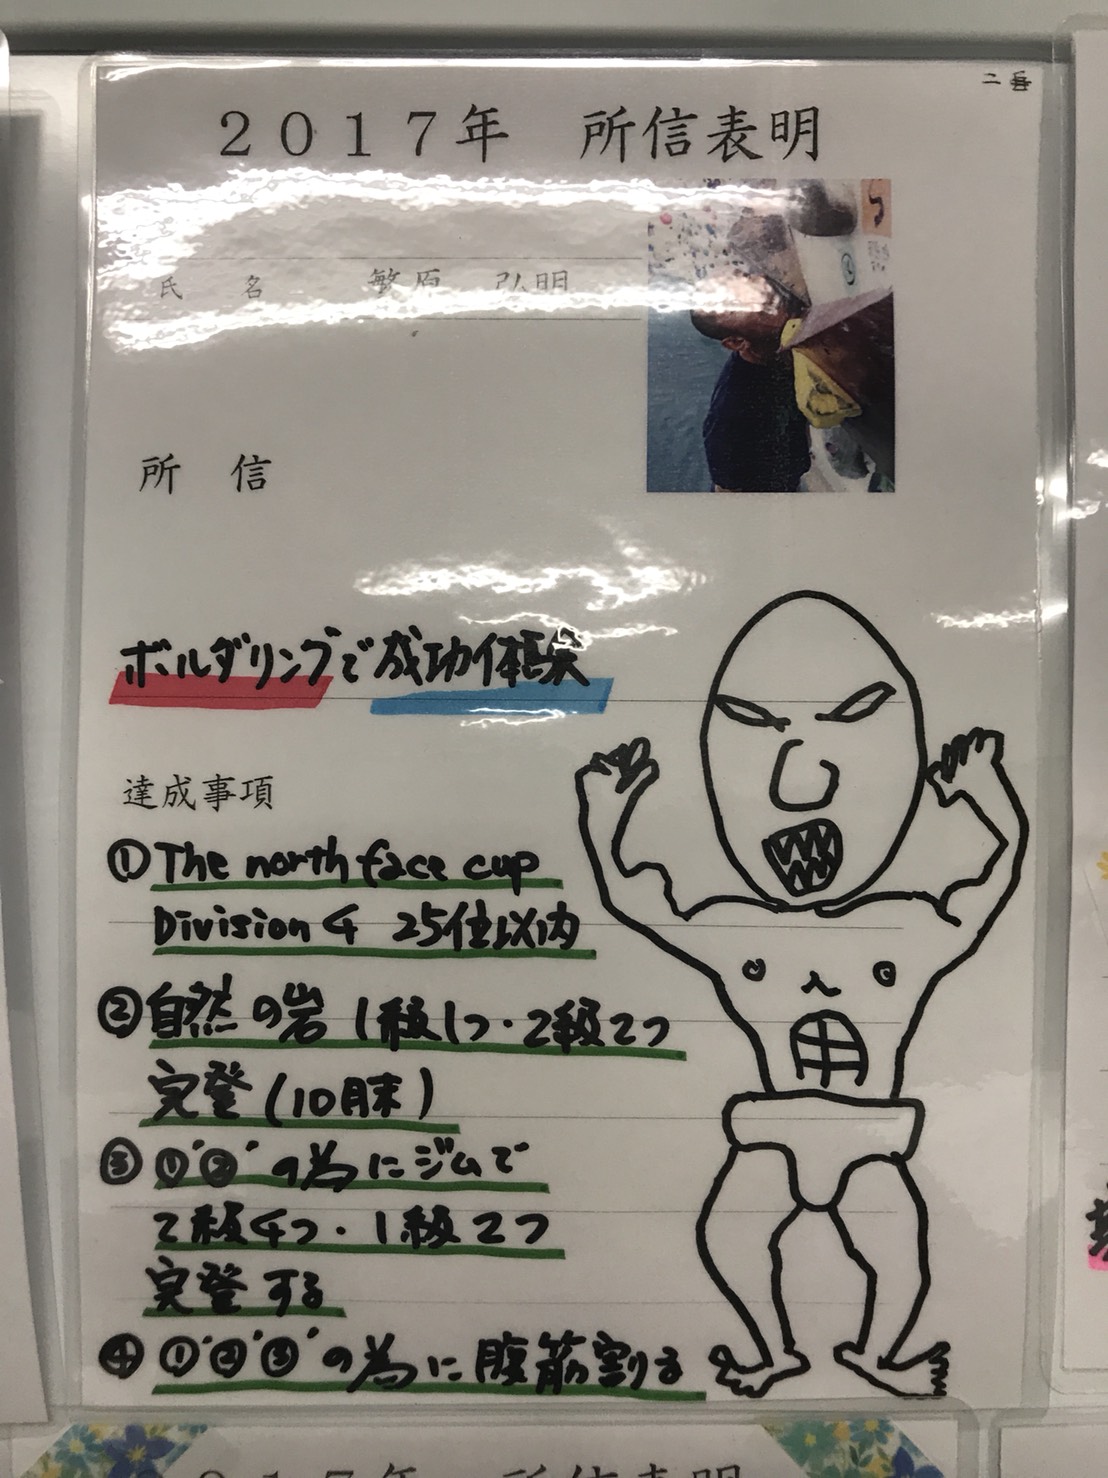 2017年 所信表明
氏 名 繁原 弘明
所 信
ボルダリングで成功体験
達成事項
① The north face cup
Division 4 25位以内
② 自然の岩 1級1つ・2級2つ
完登(10月末)
③ ①'②'の為にジムで
2級4つ・1級2つ
完登する
④ ①'②'③'の為に腹筋割る
2017年 所信表明